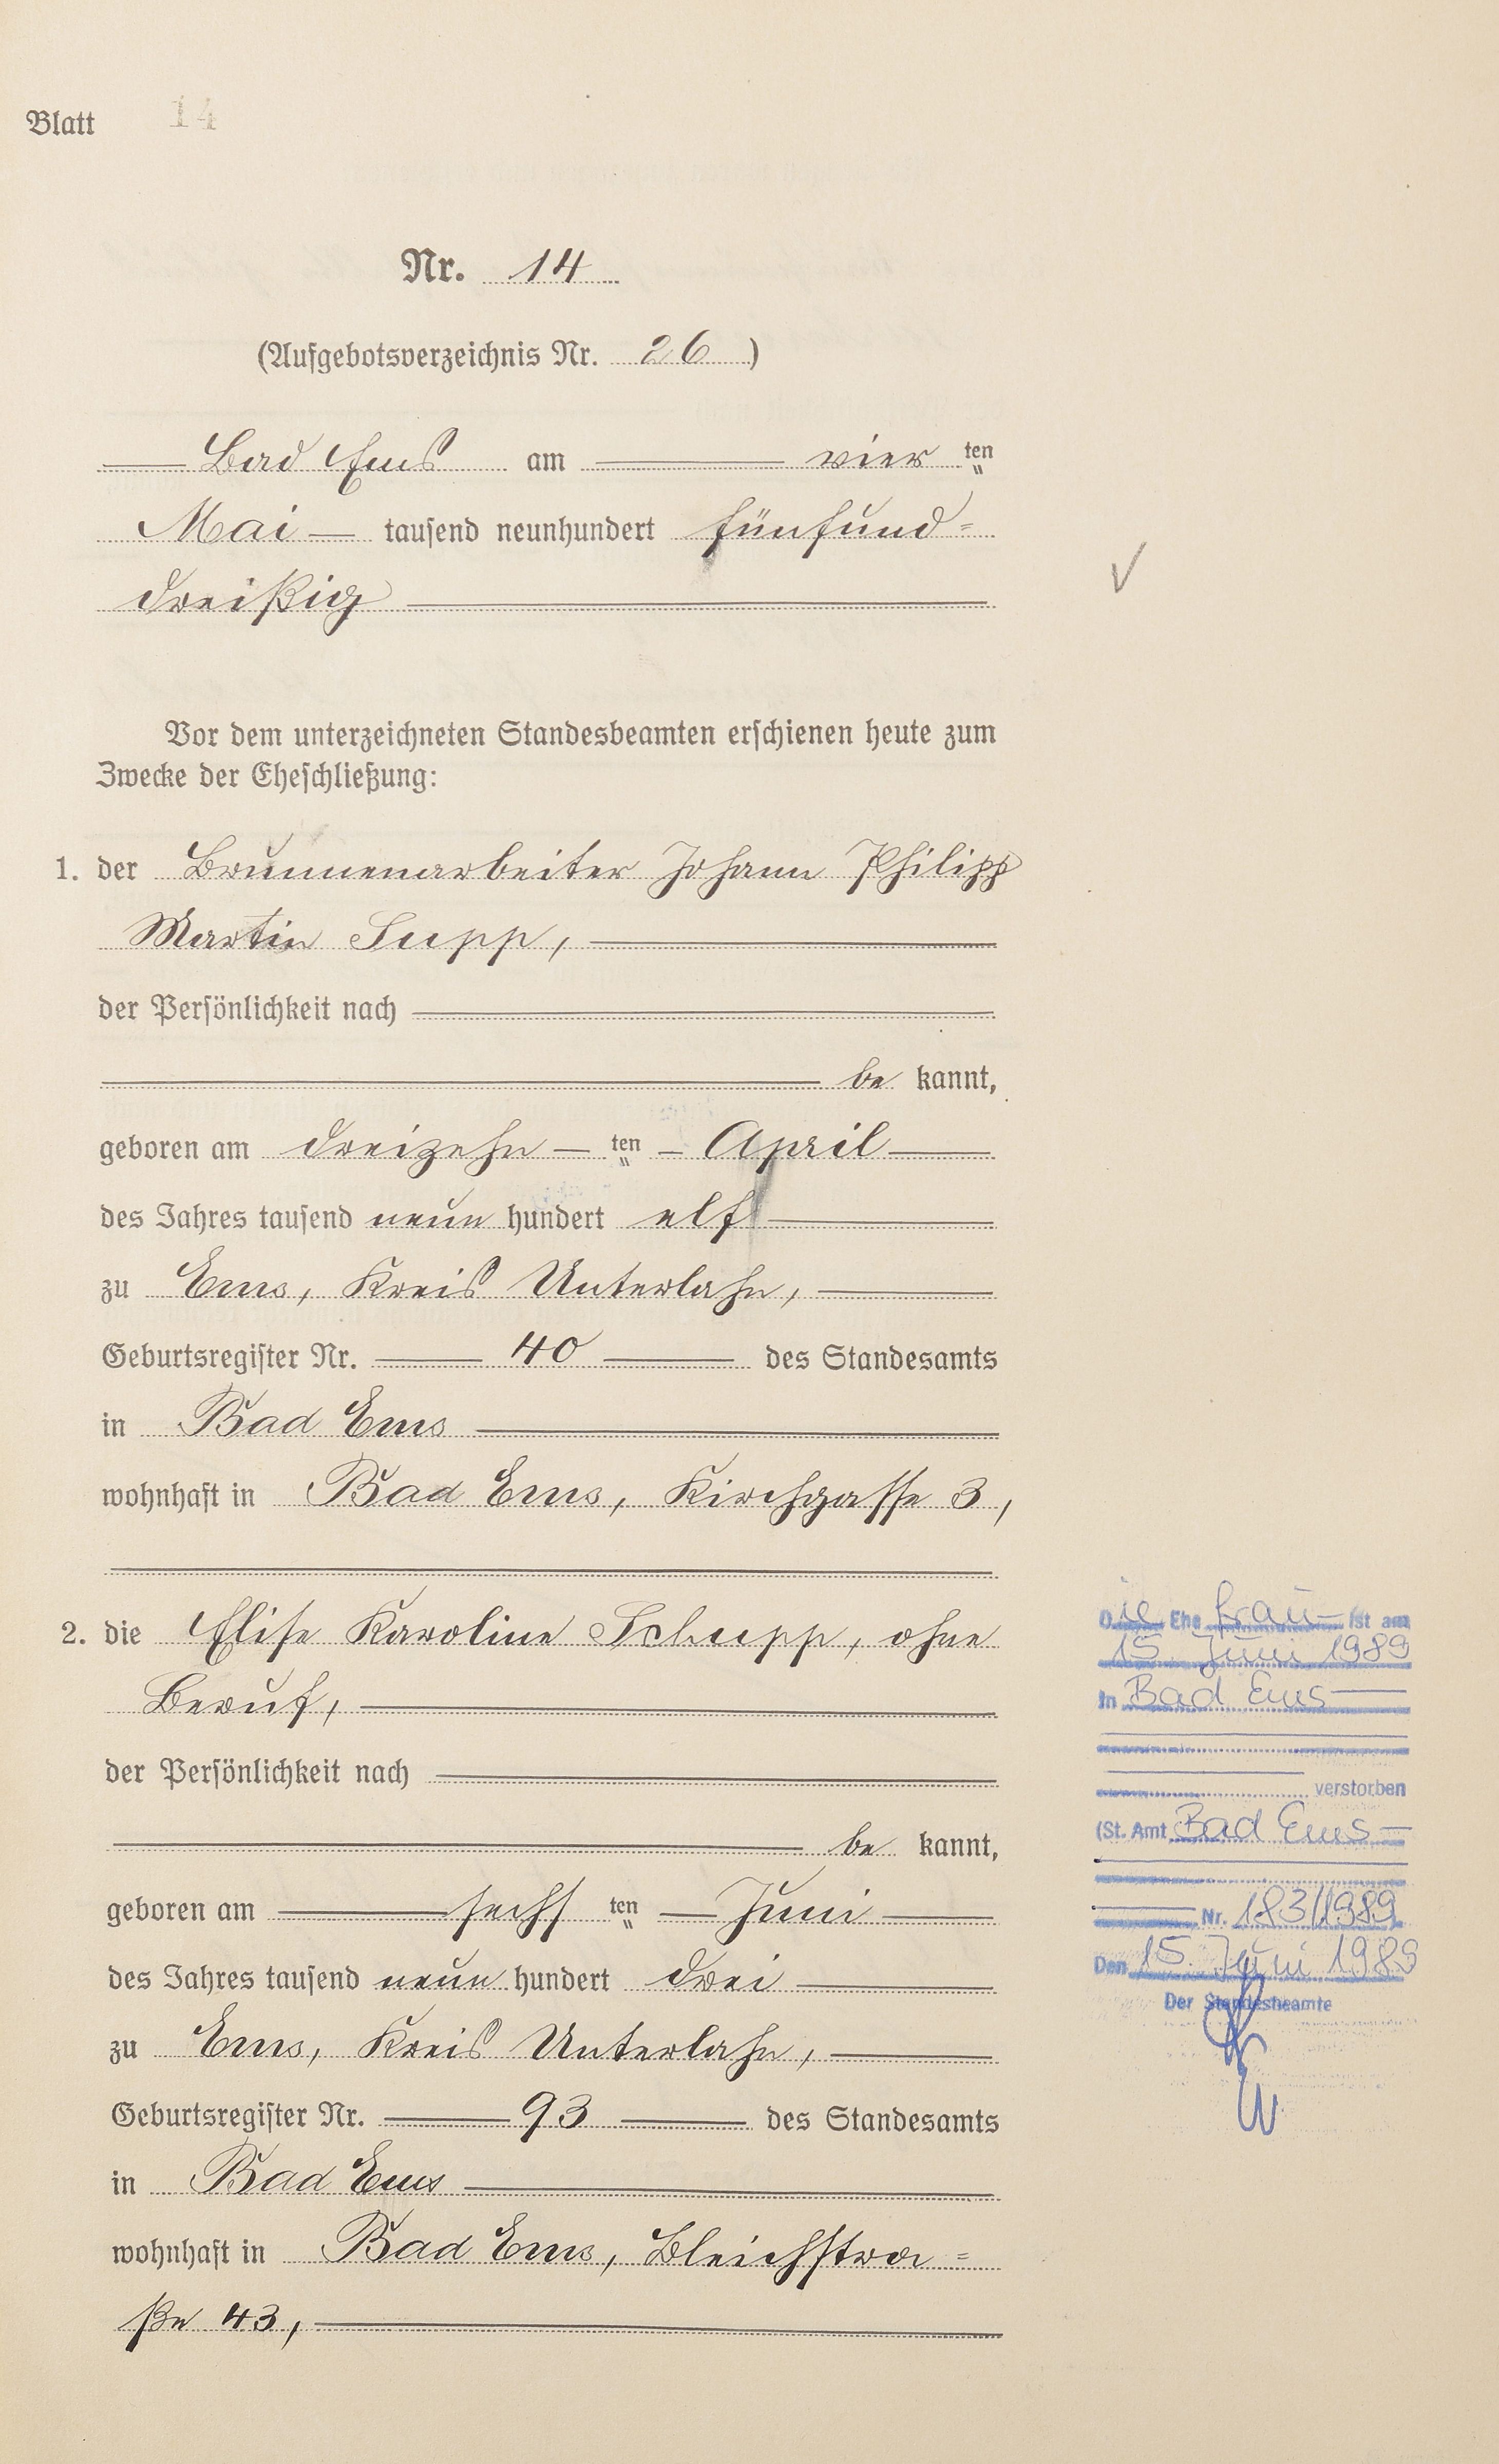 Blatt 14
Nr. 14
(Aufgebotsverzeichnis Nr. 26)
Bad Ems am vier ten
Mai tausend neunhundert fünfund=
dreißig
Vor dem unterzeichneten Standesbeamten erschienen heute zum
Zwecke der Eheschließung:
1. der Brunnenarbeiter Johann Philipp
Martin Supp,
der Persönlichkeit nach
be kannt,
geboren am dreizehn ten April
des Jahres tausend neun hundert elf
zu Ems, Kreis Unterlahn,
Geburtsregister Nr. 40 des Standesamts
in Bad Ems
wohnhaft in Bad Ems, Kirchgasse 3,
2. die Elise Karoline Schupp, ohne
Beruf,
der Persönlichkeit nach
be kannt,
geboren am sechs ten Juni
des Jahres tausend neun hundert drei
zu Ems, Kreis Unterlahn,
Geburtsregister Nr. 93 des Standesamts
in Bad Ems
wohnhaft in Bad Ems, Bleichstra=
ße 43,
Die Ehe frau ist am
15. Juni 1989
in Bad Ems
verstorben
(St. Amt Bad Ems
Nr. 183/1989)
Den 15. Juni 1989
Der Standesbeamte